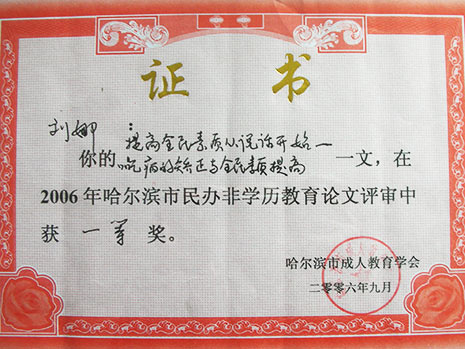 证书
刘娜：
提高全民素质从说话开始一
你的口吃病的矫正与全民素质提高一文，在
2006年哈尔滨市民办非学历教育论文评审中
获一等奖。
哈尔滨市成人教育学会
二零零六年九月